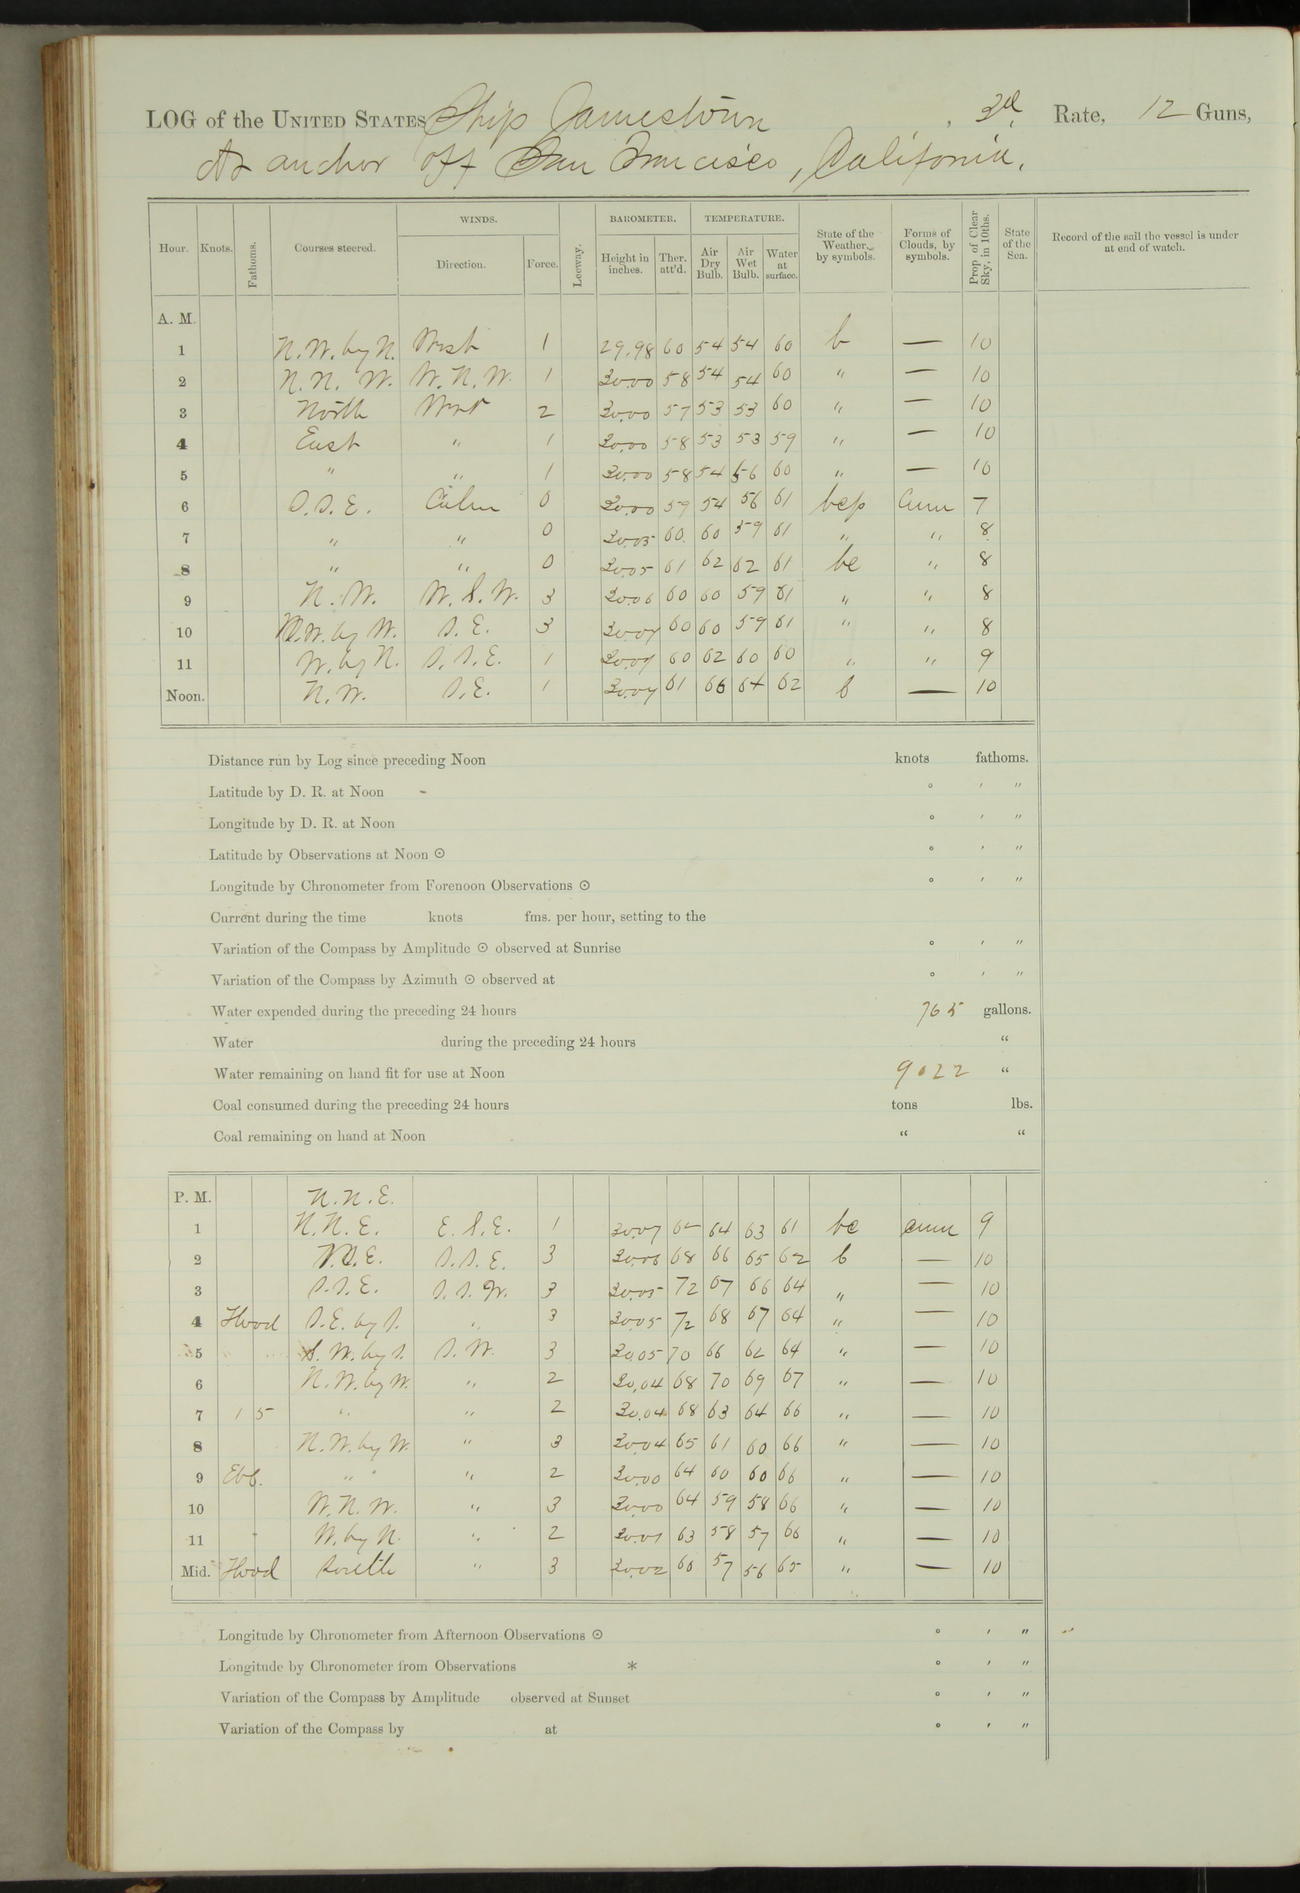 LOG of the UNITED STATES Ship Jamestown, 3d Rate, 12 Guns,
At anchor off San Francisco, California.
WINDS. BAROMETER. TEMPERATURE.
Hour. Knots. Fathoms. Courses steered. Direction. Force. Leeway. Height in inches. Ther. att'd. Air Dry Bulb. Air Wet Bulb. Water at surface. State of the Weather, by symbols. Forms of Clouds, by symbols. Prop of Clear Sky, in 10ths. State of the Sea. Record of the sail the vessel is under at end of watch.
A. M.
1 N.W. by N. West 1 29.98 60 54 54 60 b — 10
2 N. N. W. W. N. W. 1 30.00 58 54 54 60 " — 10
3 North West 2 30.00 57 53 53 60 " — 10
4 East " 1 30.00 58 53 53 59 " — 10
5 " " 1 30.00 58 54 56 60 " — 10
6 S. S. E. Calm 0 30.00 59 54 56 61 bcp Cum 7
7 " " 0 30.05 60 60 59 61 " " 8
8 " " 0 30.05 61 62 62 61 bc " 8
9 N. W. W. S. W. 3 30.06 60 60 59 61 " " 8
10 N.W. by W. S. E. 3 30.07 60 60 59 61 " " 8
11 W. by N. S. S. E. 1 30.07 60 62 60 60 " " 9
Noon. N. W. S. E. 1 30.07 61 66 64 62 b — 10
Distance run by Log since preceding Noon knots fathoms.
Latitude by D. R. at Noon - ° ′ ″
Longitude by D. R. at Noon ° ′ ″
Latitude by Observations at Noon ☉ ° ′ ″
Longitude by Chronometer from Forenoon Observations ☉ ° ′ ″
Current during the time knots fms. per hour, setting to the
Variation of the Compass by Amplitude ☉ observed at Sunrise ° ′ ″
Variation of the Compass by Azimuth ☉ observed at ° ′ ″
Water expended during the preceding 24 hours 765 gallons.
Water during the preceding 24 hours "
Water remaining on hand fit for use at Noon 9022 "
Coal consumed during the preceding 24 hours tons lbs.
Coal remaining on hand at Noon " "
P. M. N. N. E.
1 N. N. E. E. S. E. 1 30.07 64 63 61 bc cum 9
2 S. S. E. 3 30.06 68 66 65 62 b — 10
3 S. S. E. S. S. W. 3 30.05 72 67 66 64 " — 10
4 Flood S. E. by S. " 3 30.05 72 68 67 64 " — 10
5 S. W. by S. S. W. 3 30.05 70 66 62 64 " — 10
6 N. W. by W. " 2 30.04 68 70 69 67 " — 10
7 1 5 " " 2 30.04 68 63 64 66 " — 10
8 N. W. by W. " 3 30.04 65 61 60 66 " — 10
9 Ebb. " " 2 30.00 64 60 60 66 " — 10
10 W. N. W. " 3 30.00 64 59 58 66 " — 10
11 W. by N. " 2 30.01 63 58 57 66 " — 10
Mid. Flood South " 3 30.02 60 57 56 65 " — 10
Longitude by Chronometer from Afternoon Observations ☉ ° ′ ″
Longitude by Chronometer from Observations * ° ′ ″
Variation of the Compass by Amplitude observed at Sunset ° ′ ″
Variation of the Compass by at ° ′ ″